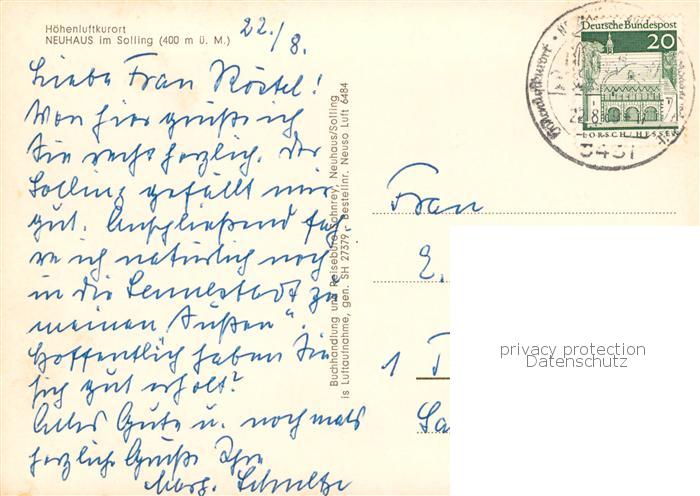 Höhenluftkurort
NEUHAUS im Solling (400 m ü. M.)
22./8.
Liebe Frau Röstel!
Von hier grüße ich
Sie recht herzlich. Der
Solling gefällt mir
gut. Anschließend fah-
re ich natürlich noch
in die Lennestadt zu
meinen „Süßen".
Hoffentlich haben Sie
sich gut erholt?
Alles Gute u. nochmals
herzliche Grüße Ihre
Marg. Schultze
Buchhandlung und Reisebüro Sohnrey, Neuhaus/Solling
is Luftaufnahme, gen. SH 27379 Bestellnr. Neuso Luft 6484
Deutsche Bundespost
20
LORSCH/HESSEN
Höhenluftkurort
22.8.69
3451
Frau
E.
1
privacy protection
Datenschutz